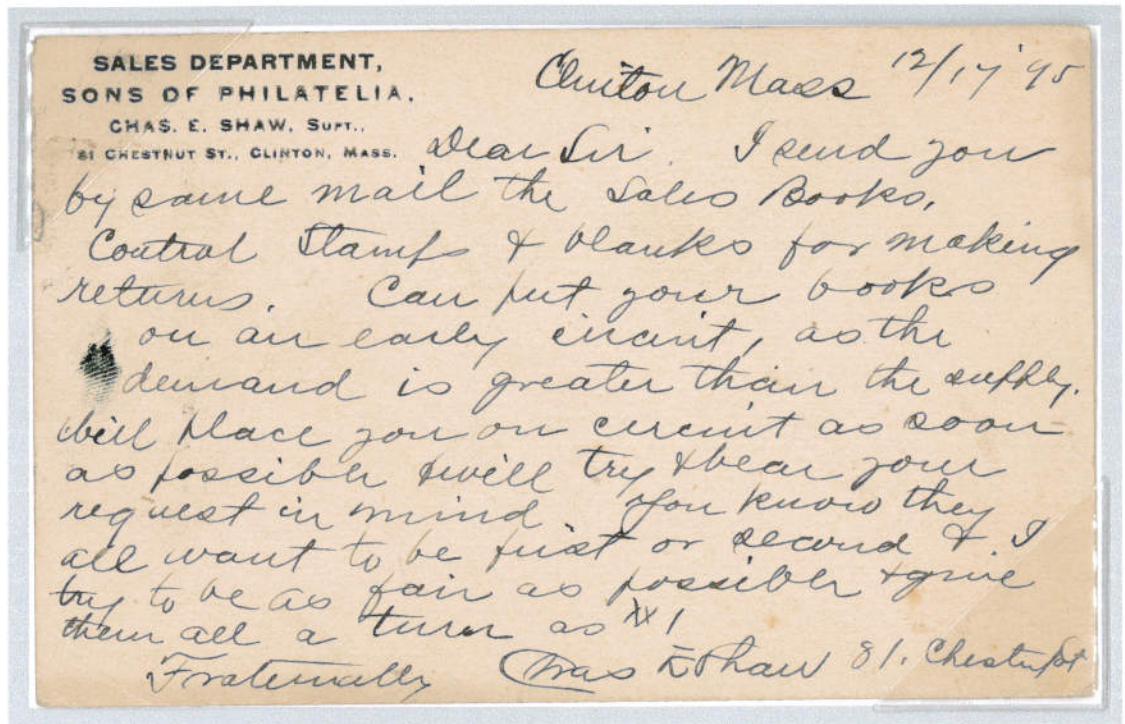 SALES DEPARTMENT,
SONS OF PHILATELIA.
CHAS. E. SHAW, SUPT.,
81 CHESTNUT ST., CLINTON, MASS.
Clinton Mass 12/17 '95
Dear Sir. I send you
by same mail the Sales Books,
Control Stamps & blanks for making
returns. Can put your books
on an early circuit, as the
demand is greater than the supply.
Will place you on circuit as soon
as possible & will try & bear your
request in mind. You know they
all want to be first or second & I
try to be as fair as possible & give
them all a turn as # 1
Fraternally Chas E Shaw 81. Chestnut St